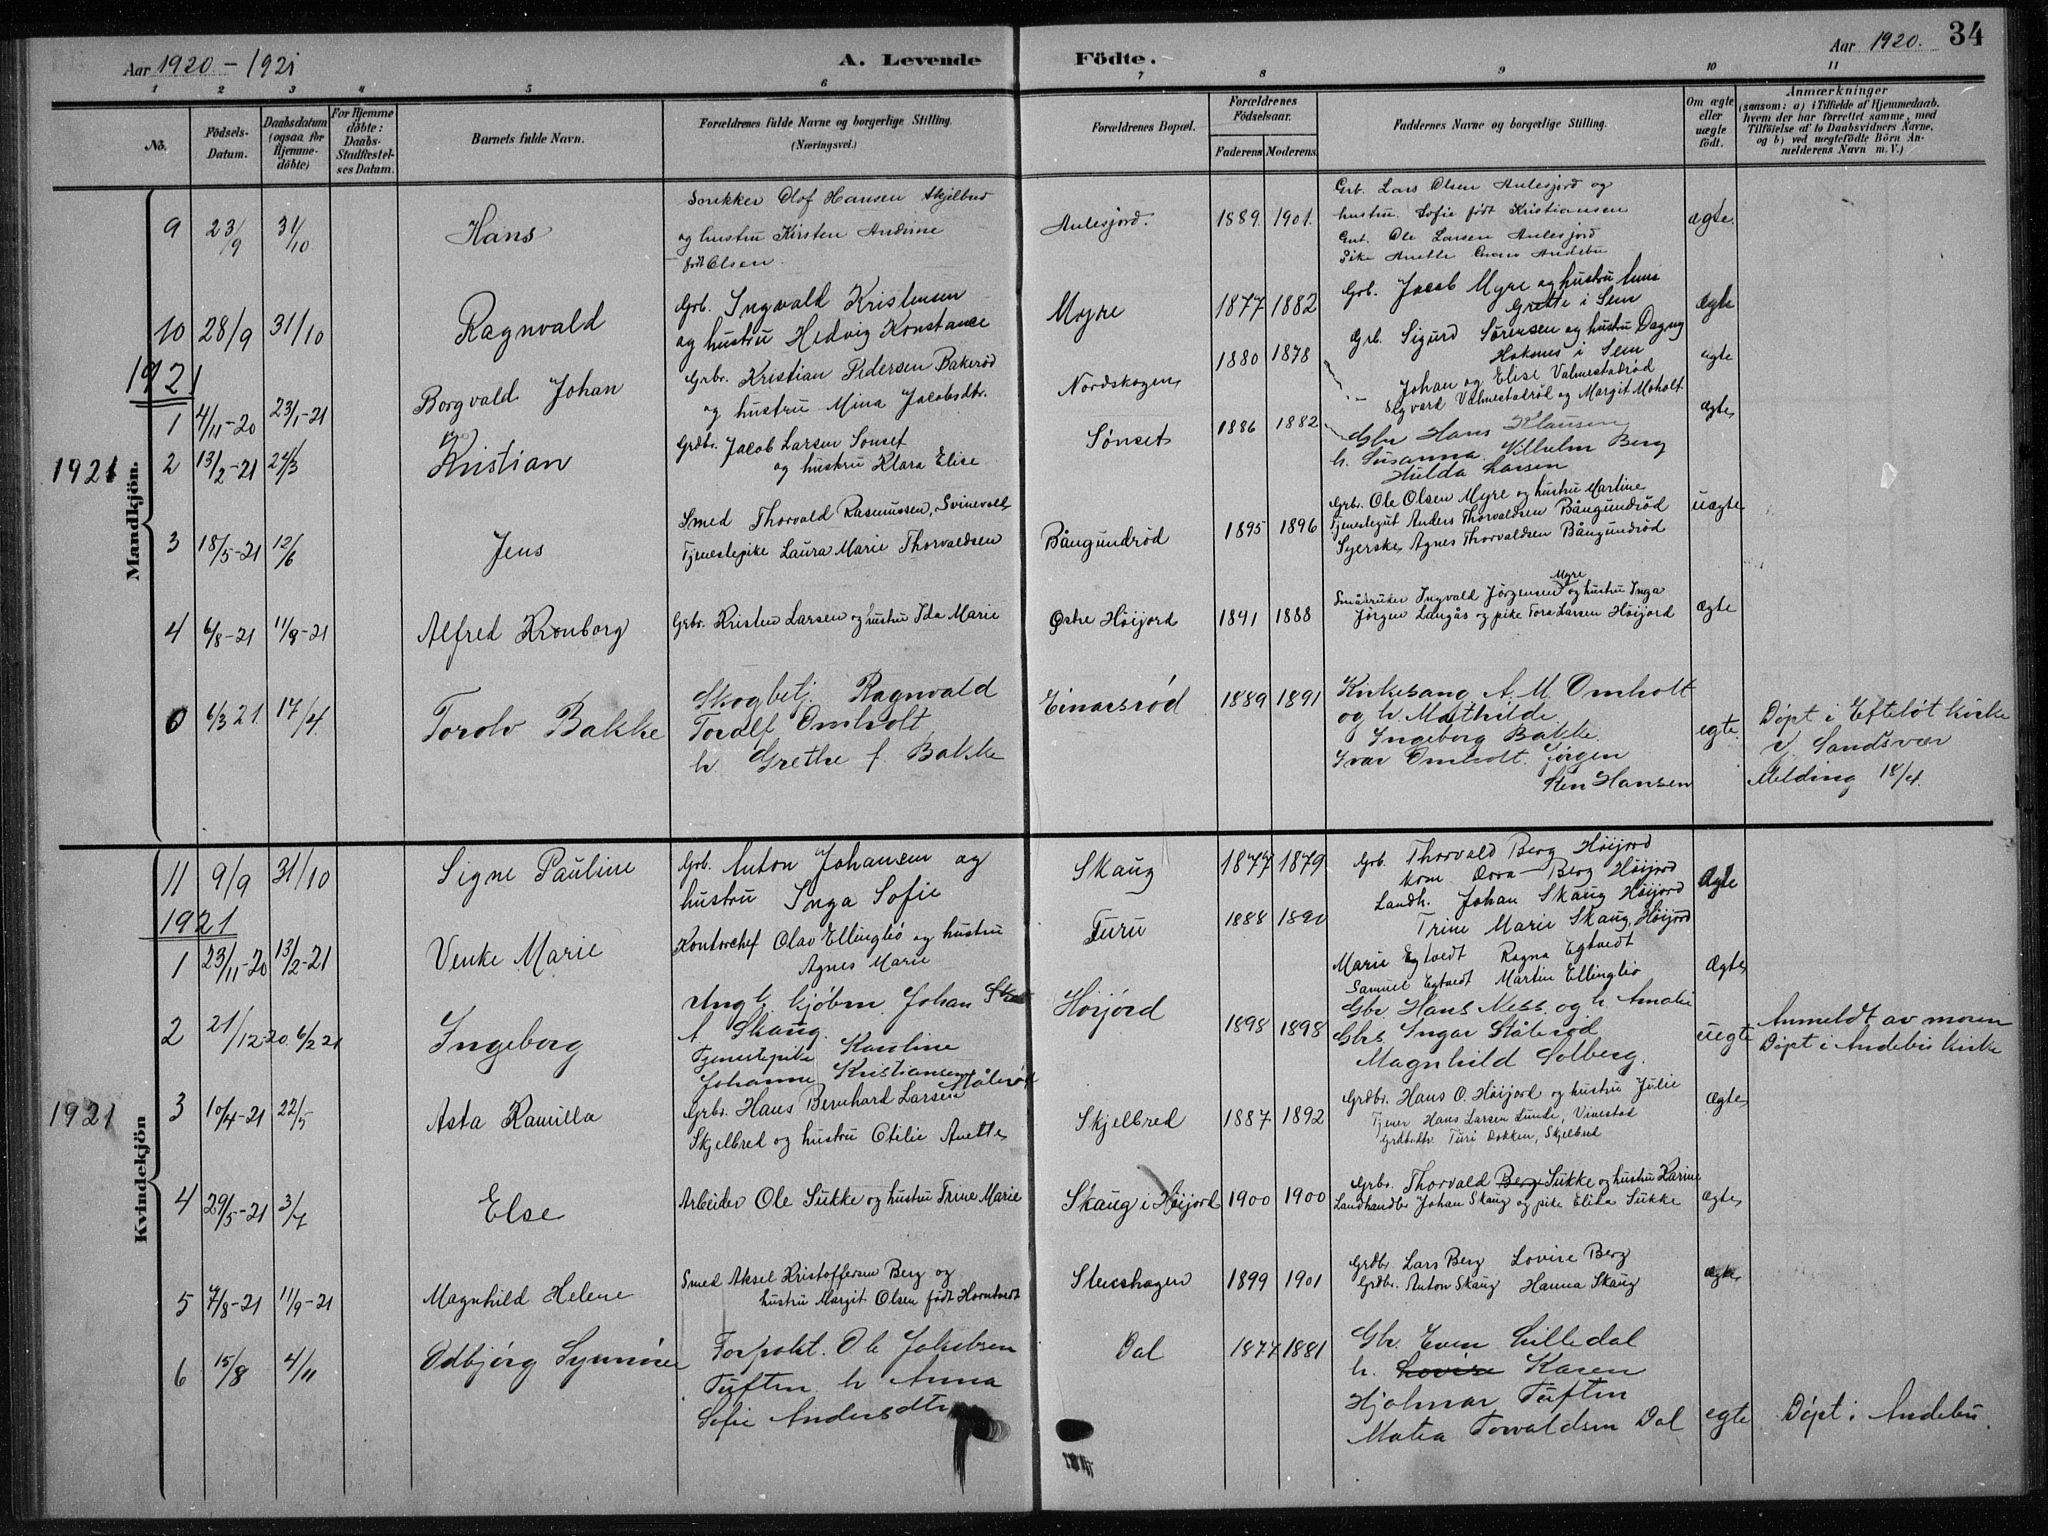 Aar 1920 - 1921
A. Levende Födte.
Aar 1920.
34
1 2 3 4 5 6 7 8 9 10 11
No.
Födsels-Datum.
Daabsdatum (ogsaa for Hjemmedöbte)
For Hjemmedöbte: Daabs-Stadfæstelses Datum.
Barnets fulde Navn.
Forældrenes fulde Navne og borgerlige Stilling. (Næringsvei.)
Forældrenes Bopæl.
Forældrenes Födselsaar.
Faderens. Moderens.
Faddernes Navne og borgerlige Stilling.
Om ægte eller uægte födt.
Anmærkninger
(saasom: a) i Tilfælde af Hjemmedaab, hvem der har forrettet samme, med Tilföielse af to Daabsvidners Navne, og b) ved uegtefödte Börn Anmelderens Navn m. V.)
Mandkjön.
1921
9 23/9 31/10 Hans
Snekker Olof Hansen Skjelbred
og hustru Kirsten Andrine
født Olsen.
Aulesjord. 1889. 1901.
Grb. Lars Olsen Aulesjord og
hustru Sofie født Kristiansen
Gut. Ole Larsen Aulesjord
Pike Anette Andebu
ægte.
10 28/9 31/10 Ragnvald
Grb. Ingvald Kristensen
og hustru Hedvig Konstance
Myre 1877 1882
Grb. Jacob Myre og hustru
Grette i Sem
Grb. Sigurd Sørensen og hustru Dagny
Haknes i Sem
ægte
1921
1 4/11-20 23/1-21 Borgvald Johan
Grbr. Kristian Pedersen Bakerød
og hustru Mina Jacobsdtr.
Nordskogen 1880 1878
Johan og Elise Valmestadrød
Sigvard Valmestadrød og Margit Moholt
ægte
2 13/2-21 24/3 Kristian
Grdbr. Jacob Larsen Sønset
og hustru Klara Elise
Sønset 1886 1882
Gbr Hans Klausen
h. Susanna. Vilhelm Berg
Hulda Larsen
ægte
3 18/5-21 12/6 Jens
Smed Thorvald Rasmussen, Svinevoll
Tjenestepike Laura Marie Thorvaldsen
Bångundrød 1895 1896
Grb. Ole Olsen Myre og hustru Martine
Tjenestegut Anders Thorvaldsen Bångundrød
Syerske Agnes Thorvaldsen Bångundrød
uægte
4 6/8-21 11/9-21 Alfred Kronborg
Grbr. Kristen Larsen og hustru Ida Marie
Østre Høijord 1891 1888
Småbruker Ingvald Jørgensen Myre og hustru Inga
Jørgen Langås og pike Tora Larsen Høijord
ægte
0 6/3 21 17/4 Torolv Bakke
Skogbetj. Ragnvald
Toralf Omholt
h. Grethe f. Bakke
Einarsrød 1889 1891
Kirkesang. A. M. Omholt
og h. Mathilde
Ingeborg Bakke.
Ivar Omholt. Jørgen
Sten Hansen
egte.
Døpt i Efteløt kirke
Sandsvær
Melding 18/4.
Kvindekjön
1921
11 9/9 31/10 Signe Pauline
Grb. Anton Johansen og
hustru Inga Sofie
Skaug 1877 1879
Grb. Thorvald Berg Høijord
Kone Dora Berg Høijord
Landh. Johan Skaug Høijord
Trine Marie Skaug, Høijord
Ægte
1921
1 23/11-20 13/2-21 Venke Marie
Kontorchef Olav Ellingbø og hustru
Agnes Marie
Furu 1888 1890
Marie Egtvedt Ragna Egtvedt
Samuel Egtvedt Martin Ellingbø
Ægte
2 21/12-20 6/2 21 Ingeborg
Ung k. kjøbm. Johan
A. Skaug.
Tjenestepike Karoline
Johanne Kristiansen Ståle
Høijord 1898 1898
Gbr Hans Ness. og h. Amalie
Gbrs Ingar Stålerød
Magnhild Solberg.
uegte
Anmeldt av moren
Døpt i Andebu kirke
3 10/4-21 22/5 Asta Kamilla
Grbr. Hans Bernhard Larsen
Skjelbred og hustru Otilie Anette
Skjelbred 1887 1892
Grdbr. Hans O. Høijord og hustru Julie
Tjener Hans Larsen Lunde, Vinestad
Grdbdtr. Turi Dokken, Skjelbred
Ægte
4 29/5-21 3/7 Else
Arbeider Ole Sukke og hustru Trine Marie
Skaug i Høijord 1900 1900
Grbr. Thorvald Berg Sukke og hustru Karine
Landhandler Johan Skaug og pike Elida Sukke
ægte
5 7/8-21 11/9-21 Magnhild Helene
Smed Aksel Kristoffersen Berg og
hustru Margit Olsen født Horntvedt
Stenshagen 1899 1901
Grdbr. Lars Berg Lovise Berg
Grdbr. Anton Skaug Hanna Skaug
ægte
6 15/8 4/11 Odbjørg Synnøve
Forpakt. Ole Jakobsen
Tuften h. Anna
Sofie Andersdtr
Dal 1877 1881
Gbr. Even Lilledal
h. Lovise Karen
Hjalmar Tuften
Matea Torvaldsen Dal
egte
Døpt i Andebu.